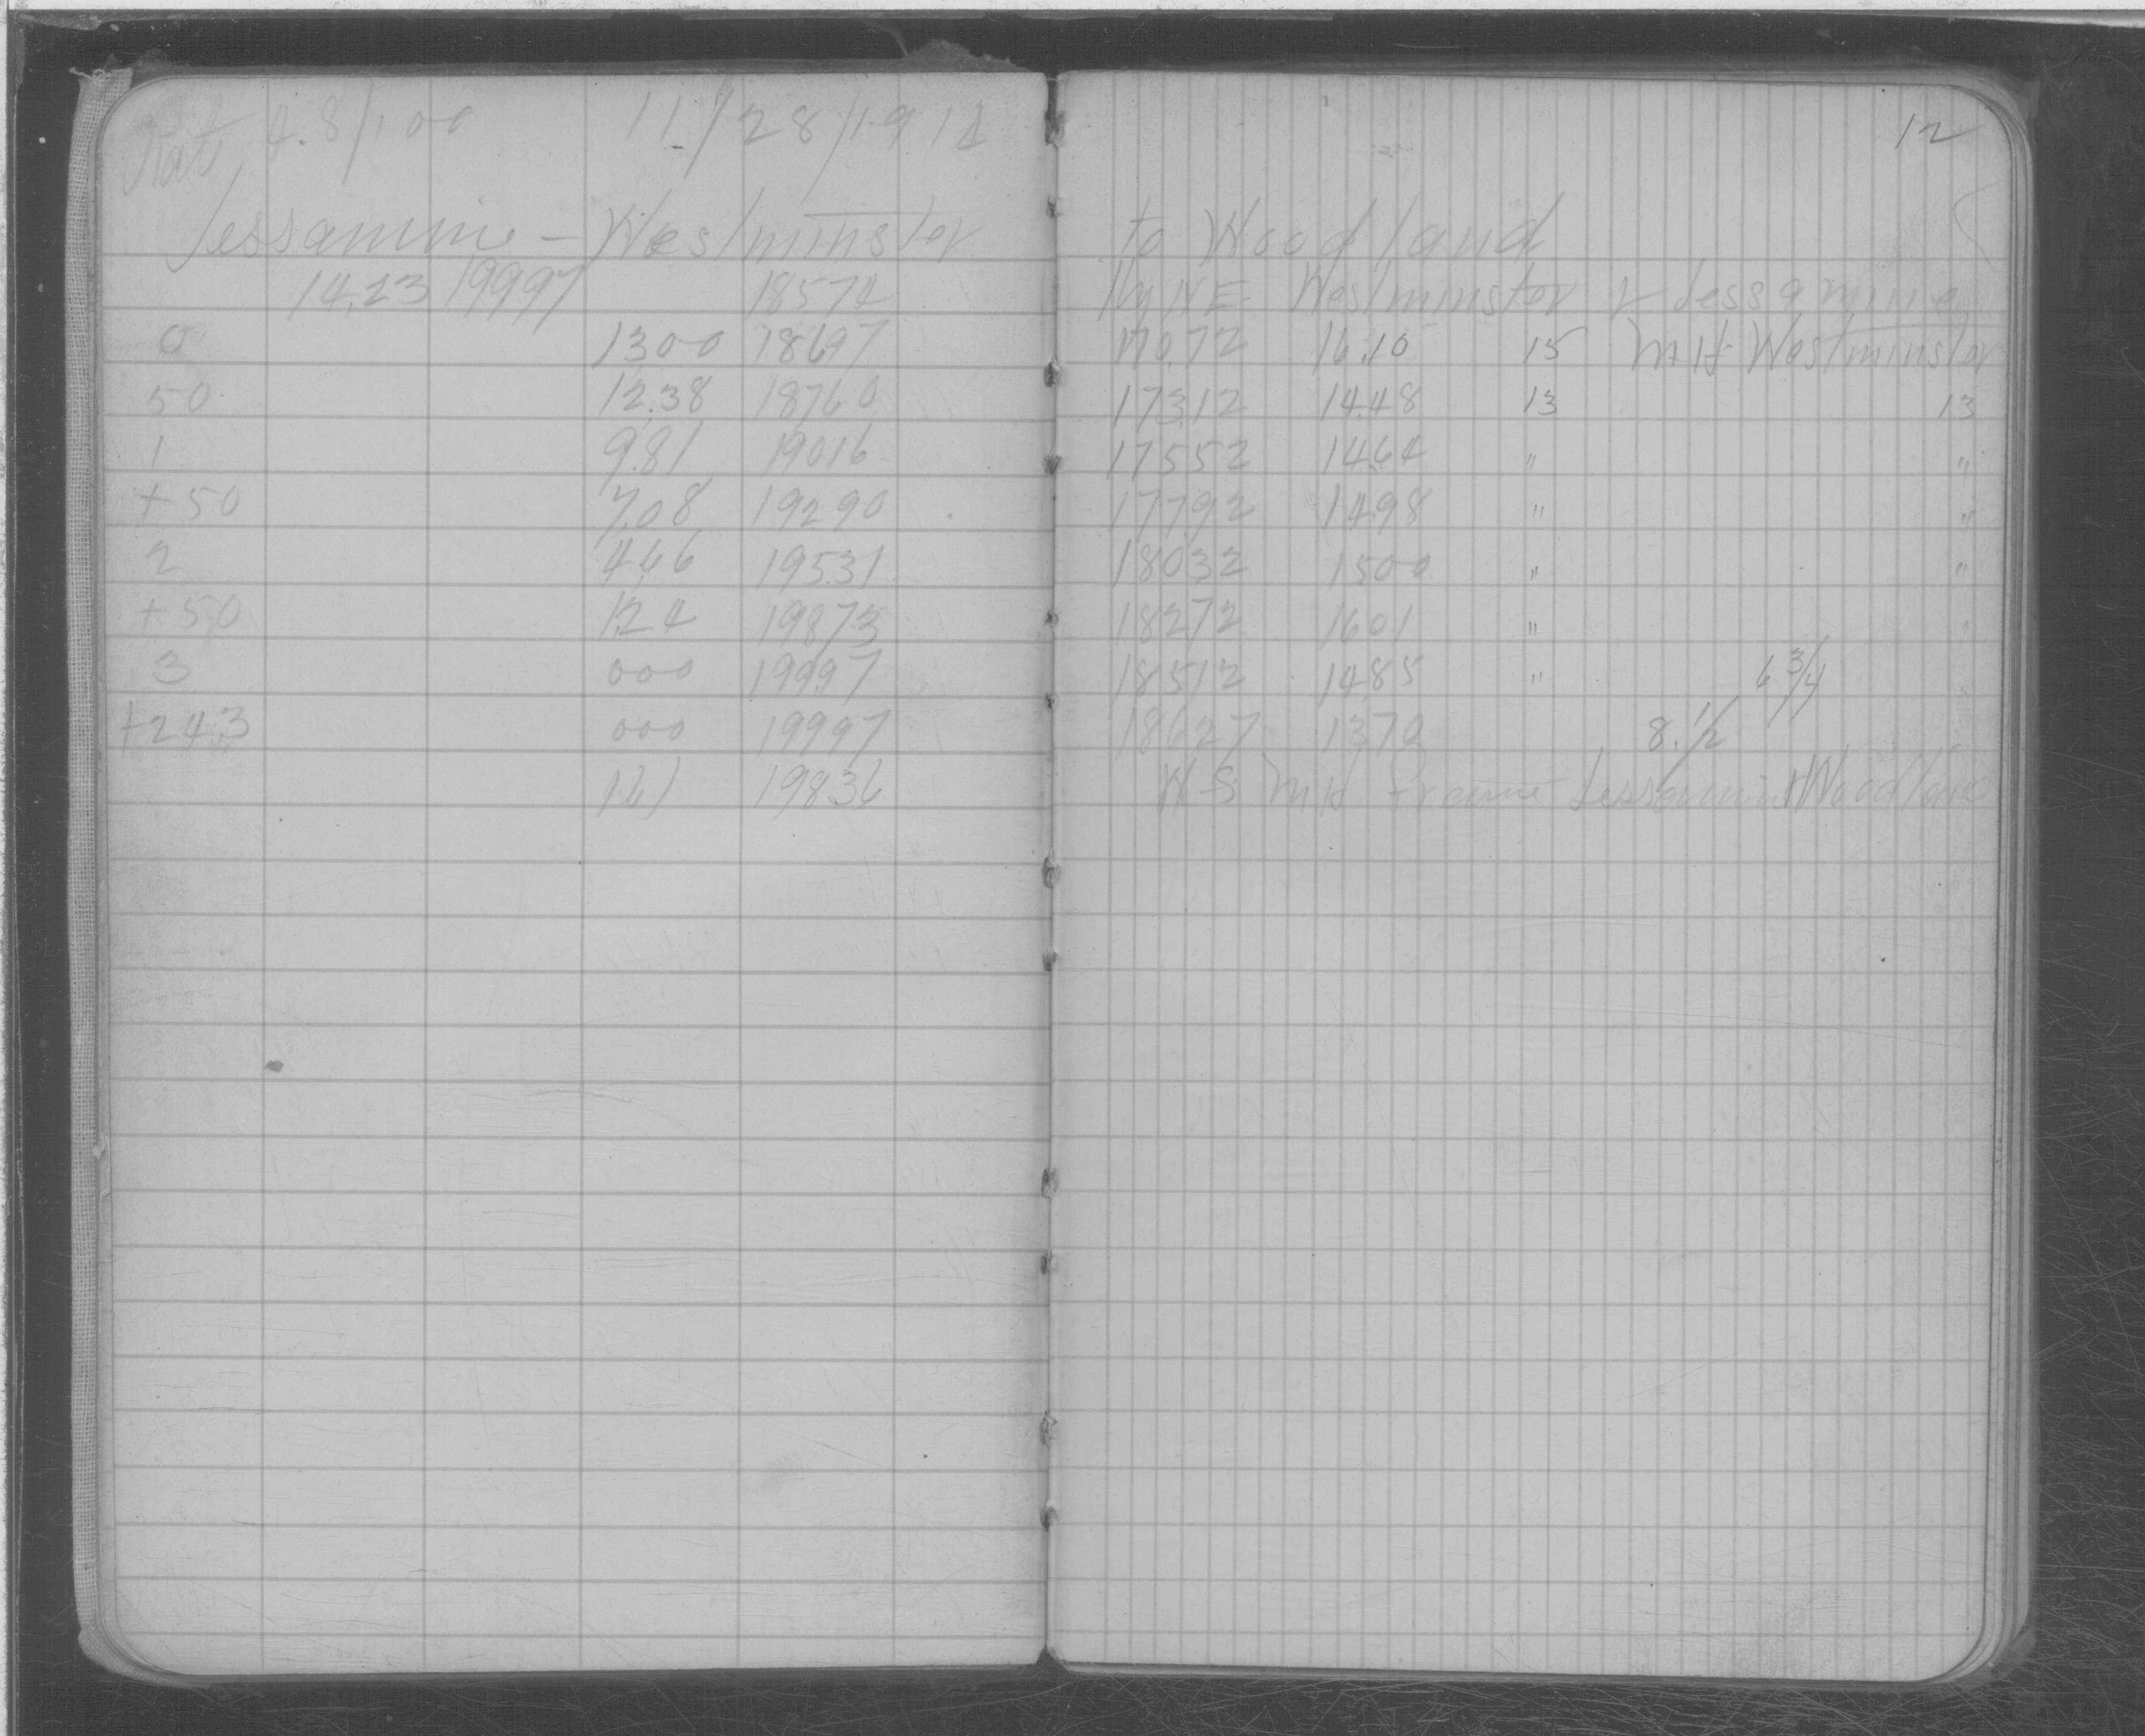 Rate 4.8/100 11/28/1914
12
Jessamine - Westminster to Woodland
14.23 19997 18574 Hy NE Westminster & Jessamine
0 13.00 18697 17072 16.10 15 MH Westminster
50 12.38 18760 17312 14.48 13 13
1 9.81 19016 17552 14.64 " "
+50 7.08 19290 17792 1498 " "
2 4.66 19531 18032 1500 " "
+50 1.24 19873 18272 1601 " "
3 000 19997 18512 1485 " 6 3/4
+24.3 000 19997 18627 1370 8 1/2
1.61 19836 W-S MH Frame Jessamine & Woodland